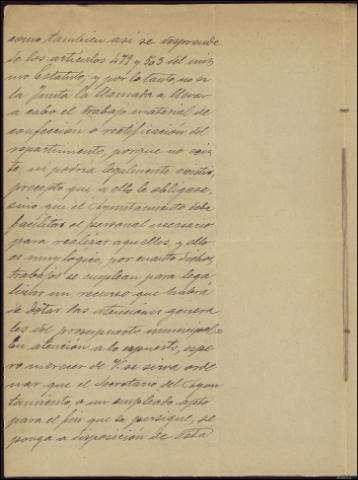 como tambien asi se desprende
de los articulos 479 y 503 del mis
mo Estatuto; y por lo tanto, no es
la Junta la llamada a llevar
a cabo el trabajo material de
confección o rectificación del
repartimiento, porque no exis
te, ni podria legalmente existir,
precepto que a ello le obligase,
sino que el Ayuntamiento debe
facilitar el personal necesario
para realizar aquellos, y ello
es muy logico, por cuanto dichos
trabajos se emplean para lega
lizar un recurso que habrá
de dotar las atenciones genera
les del presupuesto municipal.
En atención a lo expuesto, espe
ro merecer de V. se sirva orde
nar que el Secretario del Ayun
tamiento, o un empleado apto
para el fin que se persigue, se
ponga a disposición de esta